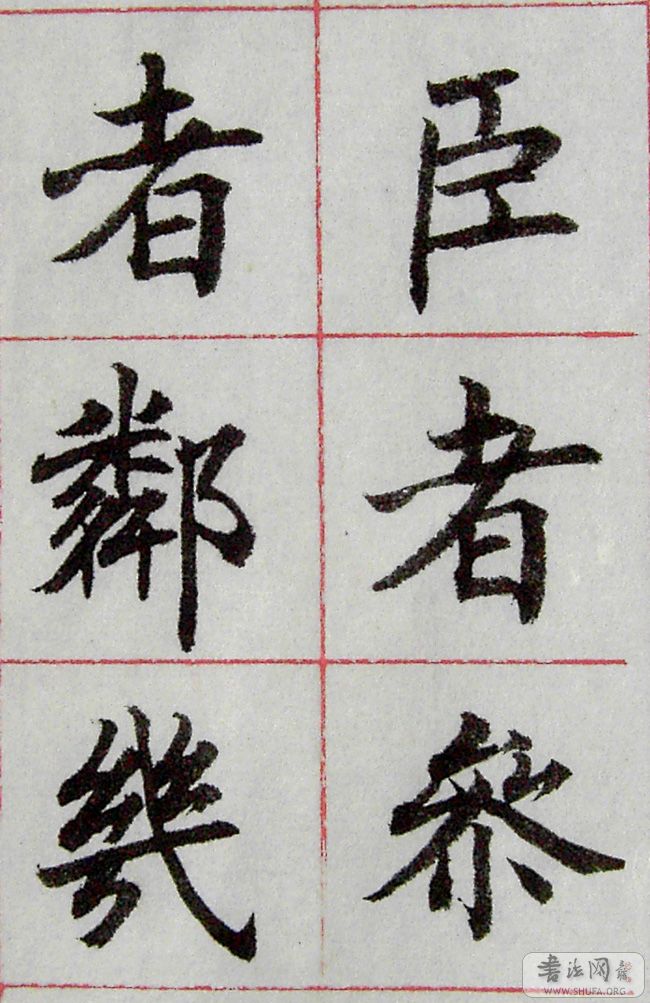 臣者參
者鄰幾
書法网
WWW.SHUFA.ORG